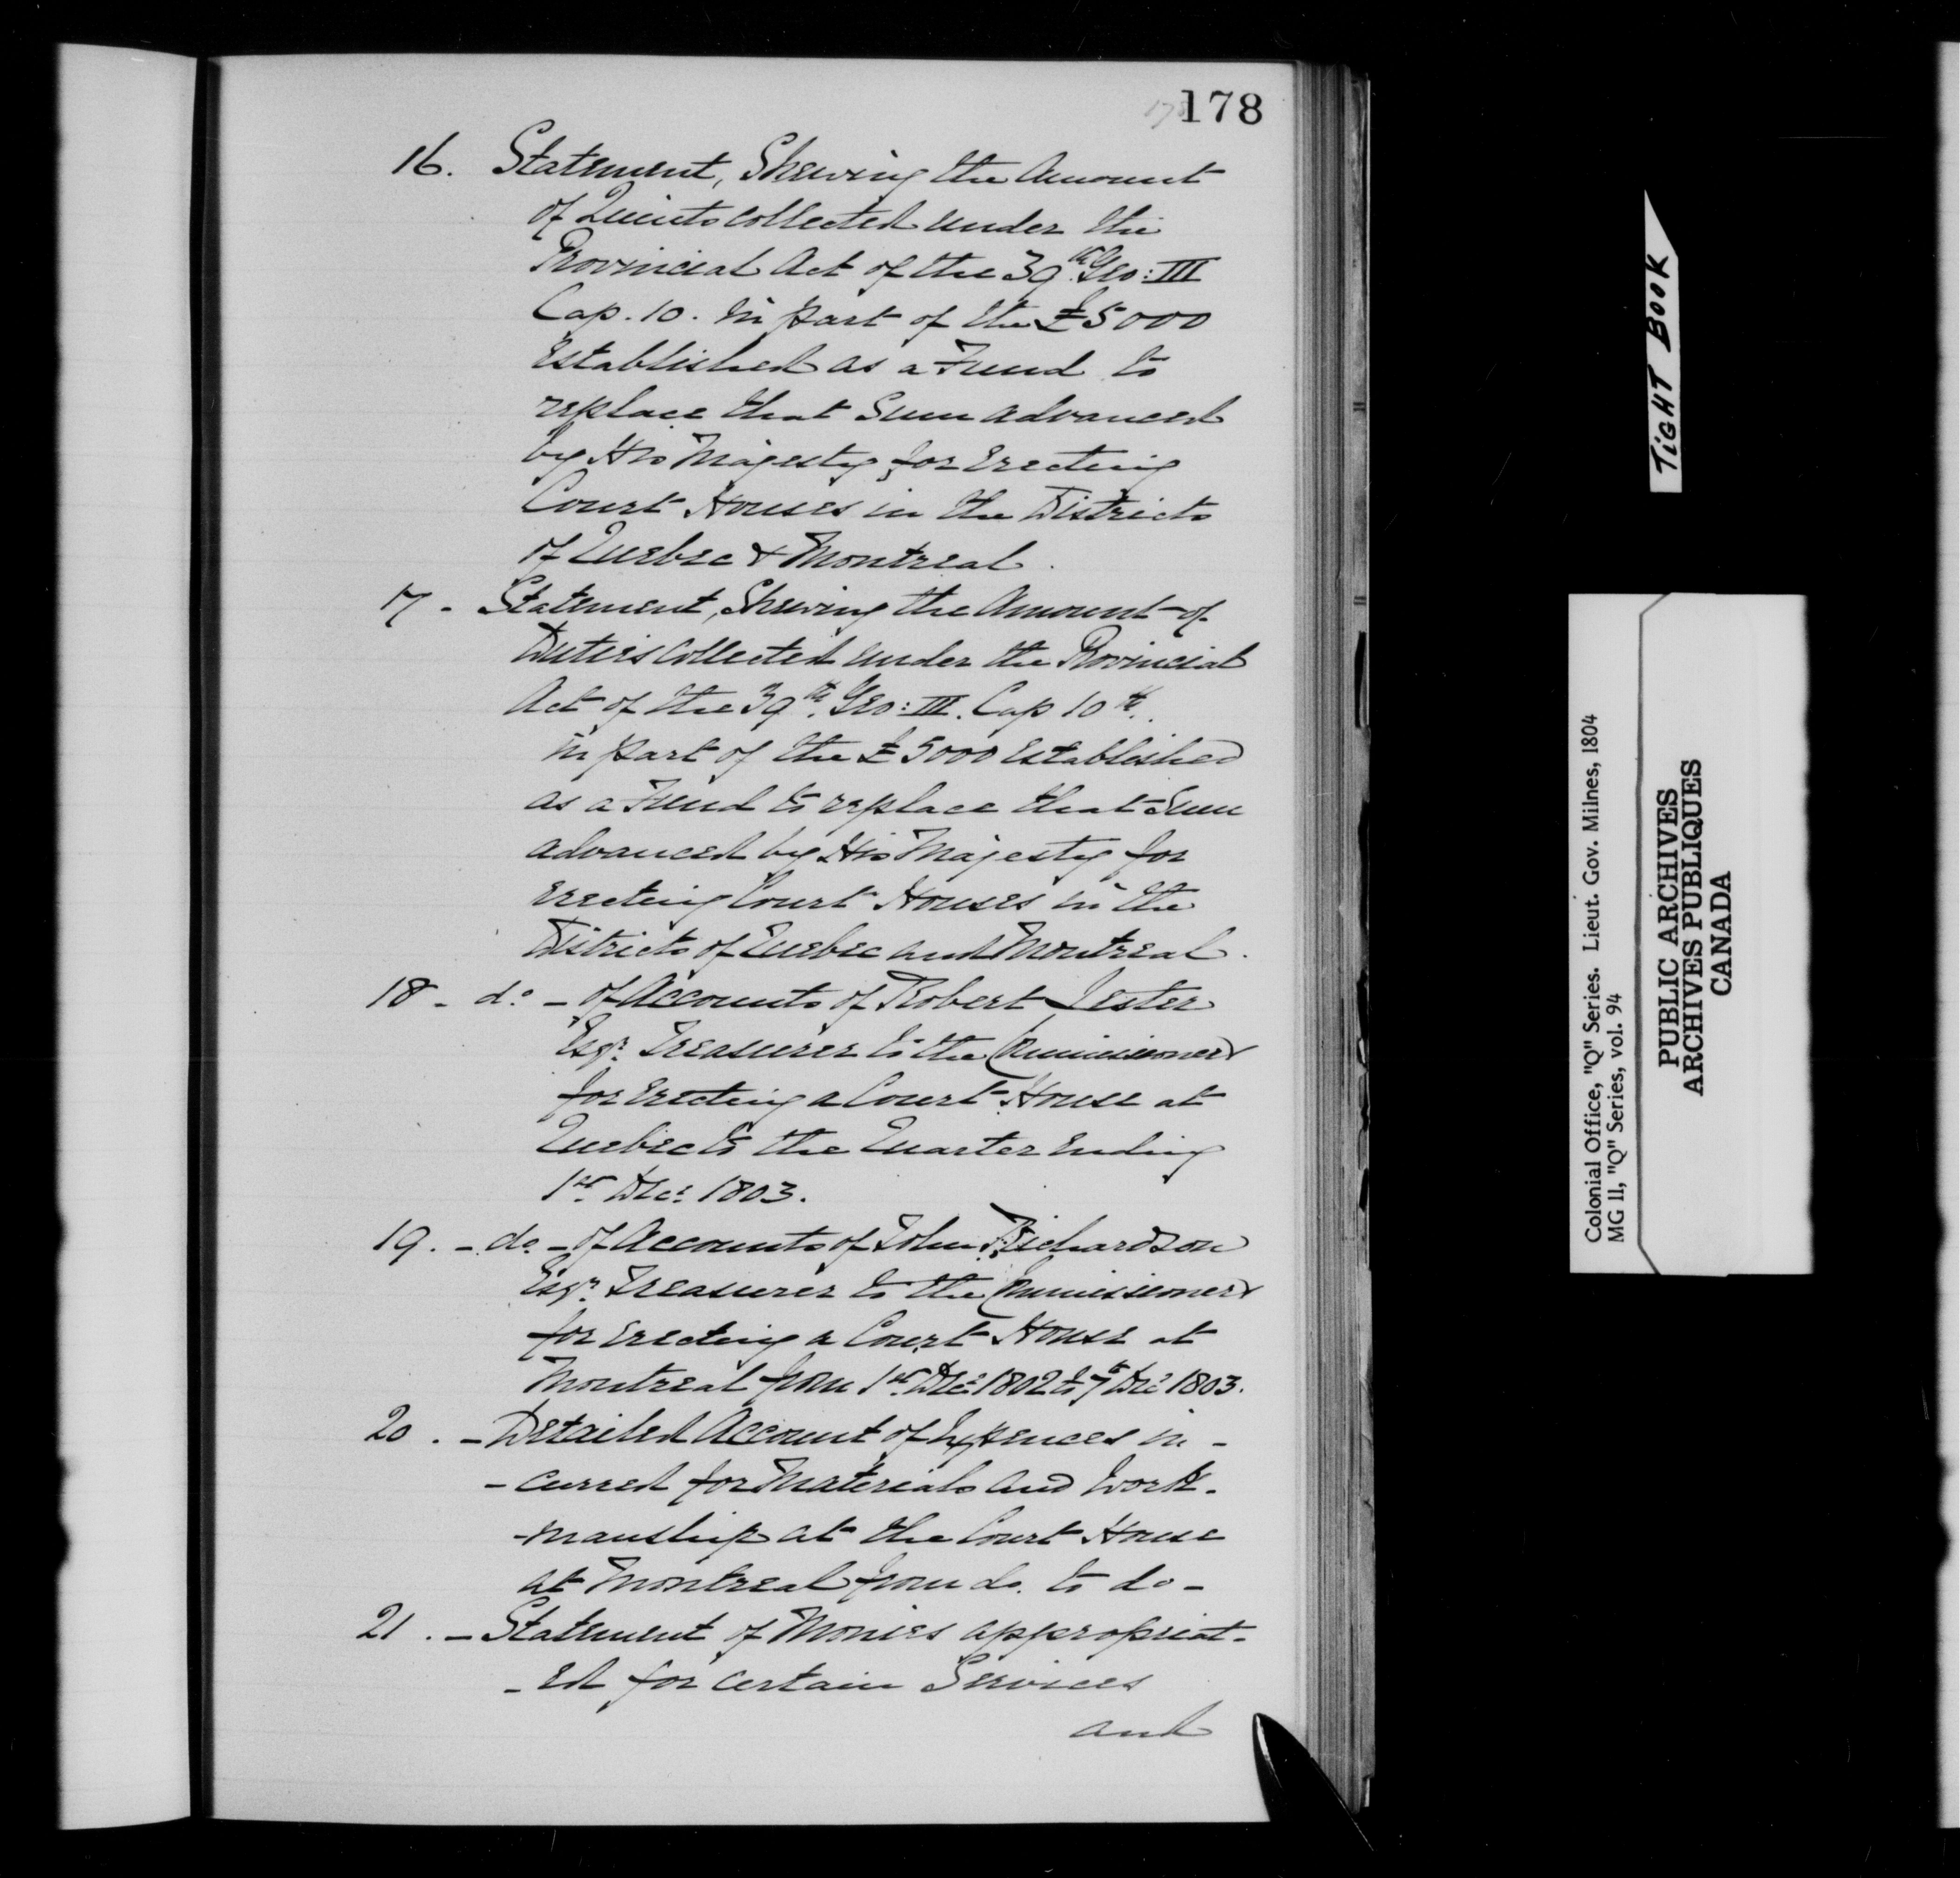 178
178
16. Statement, Shewing the Amount
of Quints collected under the
Provincial Act of the 39th Geo: III
Cap. 10. in part of the £5000
Established as a Fund to
replace that Sum advanced
by His Majesty for Erecting
Court Houses in the Districts
of Quebec & Montreal.
17 - Statement, Shewing the Amount of
Duties Collected under the Provincial
Act of the 39th. Geo: III. Cap 10th.
in part of the £5000 Established
as a Fund to replace that Sum
advanced by His Majesty for
Erecting Court Houses in the
Districts of Quebec and Montreal.
18 - do - of Accounts of Robert Lester
Esqr. Treasurer to the Commissioners
for Erecting a Court House at
Quebec to the Quarter Ending
1st Decr 1803.
19. - do - of Accounts of John Richardson
Esqr. Treasurer to the Commissioners
for Erecting a Court House at
Montreal from 1st Decr 1802 to 7th Decr 1803.
20. - Detailed Account of Expences in -
- curred for Materials and Work -
- manship at the Court House
at Montreal from do. to do -
21. - Statement of Monies appropriat -
- ed for certain Services
and
TIGHT BOOK
Colonial Office, "Q" Series. Lieut. Gov. Milnes, 1804
MG 11, "Q" Series, vol. 94
PUBLIC ARCHIVES
ARCHIVES PUBLIQUES
CANADA